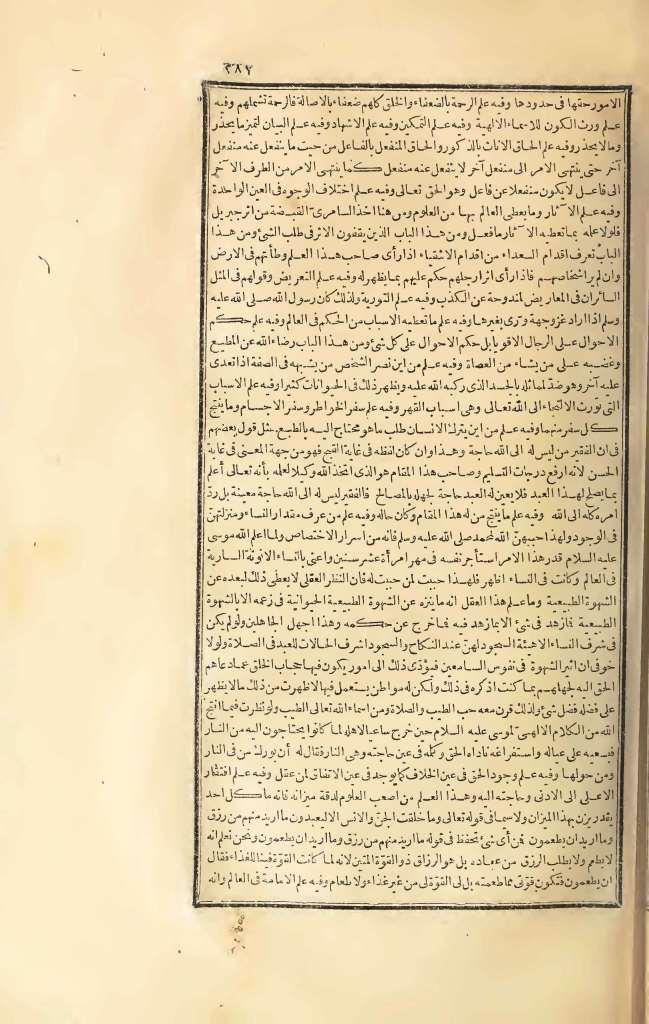 ٣٨٢
الامور حقها فى حدودها وفيه علم الرحمة بالضعفاء والخلق كلهم ضعفاء بالاصالة فالرحمة تشملهم وفيه
علم ورث الكون للاسماء الالهية وفيه علم التمكين وفيه علم الاشهاد وفيه علم البيان لتميز ما يحذر
وما لا يحذر وفيه علم الحاق الاناث بالذكور والحاق المنفعل بالفاعل من حيث ما ينفعل عنه منفعل
آخر حتى ينتهى الامر الى منفعل آخر لا ينفعل عنه منفعل كما ينتهى الامر من الطرف الآخر
الى فاعل لا يكون منفعلا عن فاعل وهو الحق تعالى وفيه علم اختلاف الوجوه فى العين الواحدة
وفيه علم الآثار وما يعطى العالم بها من العلوم ومن هنا اخذ السامرى القبضة من اثر جبريل
فلولا علمه بما تعطيه الآثار ما فعل ومن هذا الباب الذين يقفون الاثر فى طلب الشئ ومن هذا
الباب تعرف اقدام السعداء من اقدام الاشقياء اذا رأى صاحب هذا العلم وطأتهم فى الارض
وان لم ير اشخاصهم فاذا رأى اثر ارجلهم حكم عليهم بما يظهر له وفيه علم التعريض وقولهم فى المثل
السائر ان فى المعاريض لمندوحة عن الكذب وفيه علم التورية ولذلك كان رسول الله صلى الله عليه
وسلم اذا اراد غزو جهة ورى بغيرها وفيه علم ما تعطيه الاسباب من الحكم فى العالم وفيه علم حكم
الاحوال على الرجال الاقوياء بل حكم الاحوال على كل شئ ومن هذا الباب رضاء الله عن المطيع
وغضبه على من يشاء من العصاة وفيه علم من اين نصر الشخص من يشبهه فى الصفة اذا تعدى
عليه آخر وهو ضد لمماثله بالجسد الذى ركبه الله عليه ويظهر ذلك فى الحيوانات كثيرا وفيه علم الاسباب
التى تورث الالتجاء الى الله تعالى وهى اسباب القهر وفيه علم سفر الخواطر وسفر الاجسام وما ينتج
كل سفر منهما وفيه علم من اين يترك الانسان طلب ما هو محتاج اليه بالطبع مثل قول بعضهم
فى ان الفقير من ليس له الى الله حاجة وهذا وان كان لفظه فى غاية القبح فهو من جهة المعنى فى غاية
الحسن لانه ارفع درجات التسليم وصاحب هذا المقام هو الذى اتخذ الله وكيلا لعلمه بأنه تعالى أعلم
بما يصلح لهذا العبد فلا يعين له العبد حاجة لجهله بالمصالح فالفقير ليس له الى الله حاجة معينة بل رد
امره كله الى الله وفيه علم ما ينتج من له هذا المقام وكان حاله وفيه علم من عرف مقدار النساء ومنزلتهن
فى الوجود ولهذا حببهن الله لمحمد صلى الله عليه وسلم فانه من اسرار الاختصاص ولما علم الله موسى
عليه السلام قدر هذا الامر استأجر نفسه فى مهر امرأة عشر سنين واعنى بالنساء الانوثة السارية
فى العالم وكانت فى النساء اظهر فلهذا حببت لمن حببت له فان النظر العقلى لا يعطى ذلك لبعده عن
الشهوة الطبيعية وما علم هذا العقل انه ما ينزه عن الشهوة الطبيعية الحيوانية فى زعمه الا بالشهوة
الطبيعية فما زهد فى شئ الا بما زهد فيه فما خرج عن حكمه وهذا اجهل الجاهلين ولو لم يكن
فى شرف النساء الا هيئة السجود لهن عند النكاح والسجود اشرف الحالات للعبد فى الصلاة ولولا
خوفى ان اثير الشهوة فى نفوس السامعين فيؤدى ذلك الى امور يكون فيها حجاب الخلق عما دعاهم
الحق اليه لجهلهم بما كنت اذكره فى ذلك ولكن له مواطن يستعمل فيها لاظهرت من ذلك ما لا يظهر
على فضله فضل شئ ولذلك قرن معه حب الطيب والصلاة ومن اسماء الله تعالى الطيب ولو نظرت فيما انتج
الله من الكلام الالهى لموسى عليه السلام حين خرج ساعيا لاهله لما كانوا يحتاجون اليه من النار
فبسعيه على عياله واستفراغه ناداه الحق وكلمه فى عين حاجته وهى النار فقال له أن بورك من فى النار
ومن حولها وفيه علم وجود الحق فى عين الخلاف كما يوجد فى عين الاتفاق لمن عقل وفيه علم افتقار
الاعلى الى الادنى وحاجته اليه وهذا العلم من اصعب العلوم لدقة ميزانه فانه ما كل احد
يقدر يزن بهذا الميزان ولا سيما فى قوله تعالى وما خلقت الجن والانس الا ليعبدون ما اريد منهم من رزق
وما اريد ان يطعمون فمن أى شئ تحفظ فى قوله ما اريد منهم من رزق وما اريد ان يطعمون ونحن نعلم انه
لا يطعم ولا يطلب الرزق من عباده بل هو الرزاق ذو القوة المتين لانه لما كانت القوة فينا للغذاء فقال
ان يطعمون فتكون قوتى مما طعمته بل لى القوة لى من غير غذاء ولا طعام وفيه علم الامامة فى العالم وانه